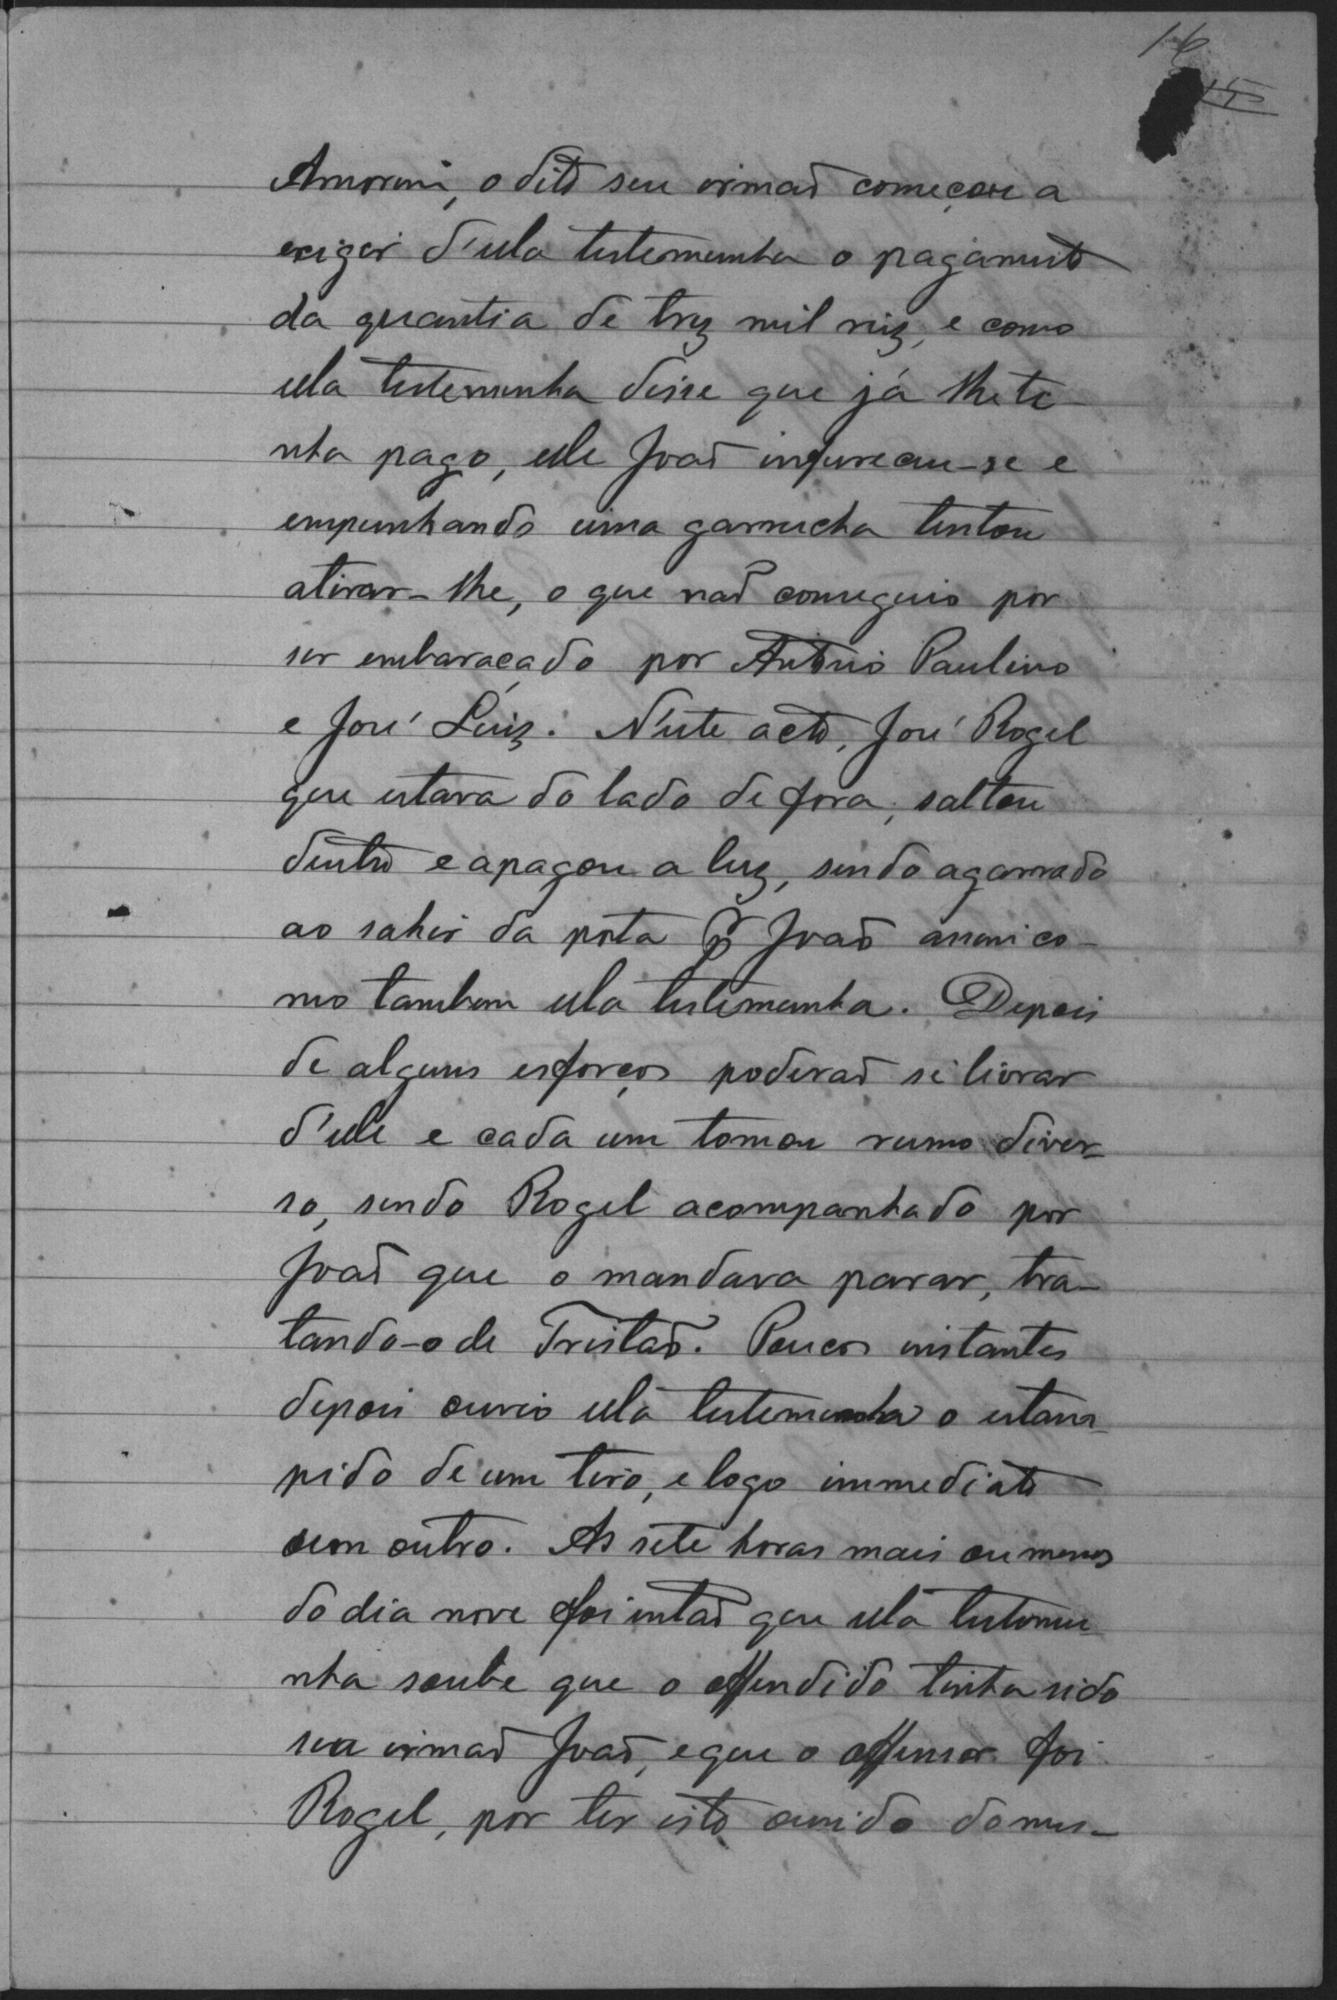 16
15
Amorim, o dito seu irmaõ começou a
exigir d'ella testemunha o pagamento
da quantia de trez mil reiz, e como
ella testemunha disse que já lhe ti-
nha pago, elle Joaõ infureceu-se e
empunhando uma garrucha tentou
atirar-lhe, o que naõ conseguio por
ser embaraçado por Antonio Paulino
e José Luiz. N'este acto, José Rogel
que estava do lado de fora, saltou
dentro e apagou a luz, sendo agarrado
ao sahir da porta pr Joaõ assim co-
mo tambem ella testemunha. Depois
de alguns esforços poderaõ se livrar
d'elle e cada um tomou rumo diver-
so, sendo Rogel acompanhado por
Joaõ que o mandava parar, tra-
tando-o de Tristaõ. Poucos instantes
depois ouvio ella testemunha o estam-
pido de um tiro, e logo immediato
um outro. As sete horas mais ou menos
do dia nove foi entaõ que ella testemu-
nha soube que o offendido tinha sido
seu irmaõ Joaõ, e que o offensor foi
Rogel, por ter isto ouvido do mes-